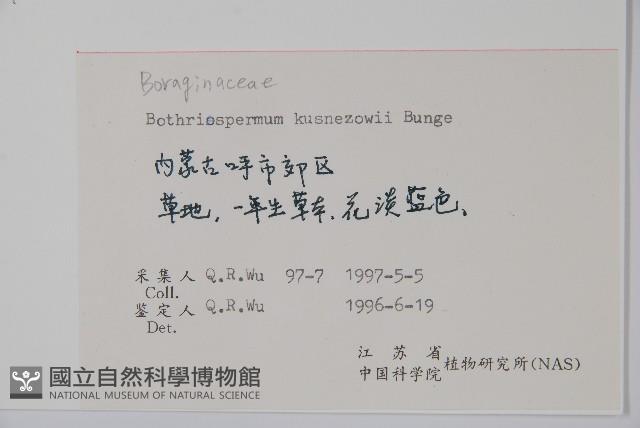 Boraginaceae
Bothriospermum kusnezowii Bunge
内蒙古呼市郊区
草地，一年生草本，花淡蓝色、
采集人 Q.R.Wu 97-7 1997-5-5
Coll.
鉴定人 Q.R.Wu 1996-6-19
Det.
江苏省
中国科学院 植物研究所(NAS)
國立自然科學博物館
NATIONAL MUSEUM OF NATURAL SCIENCE